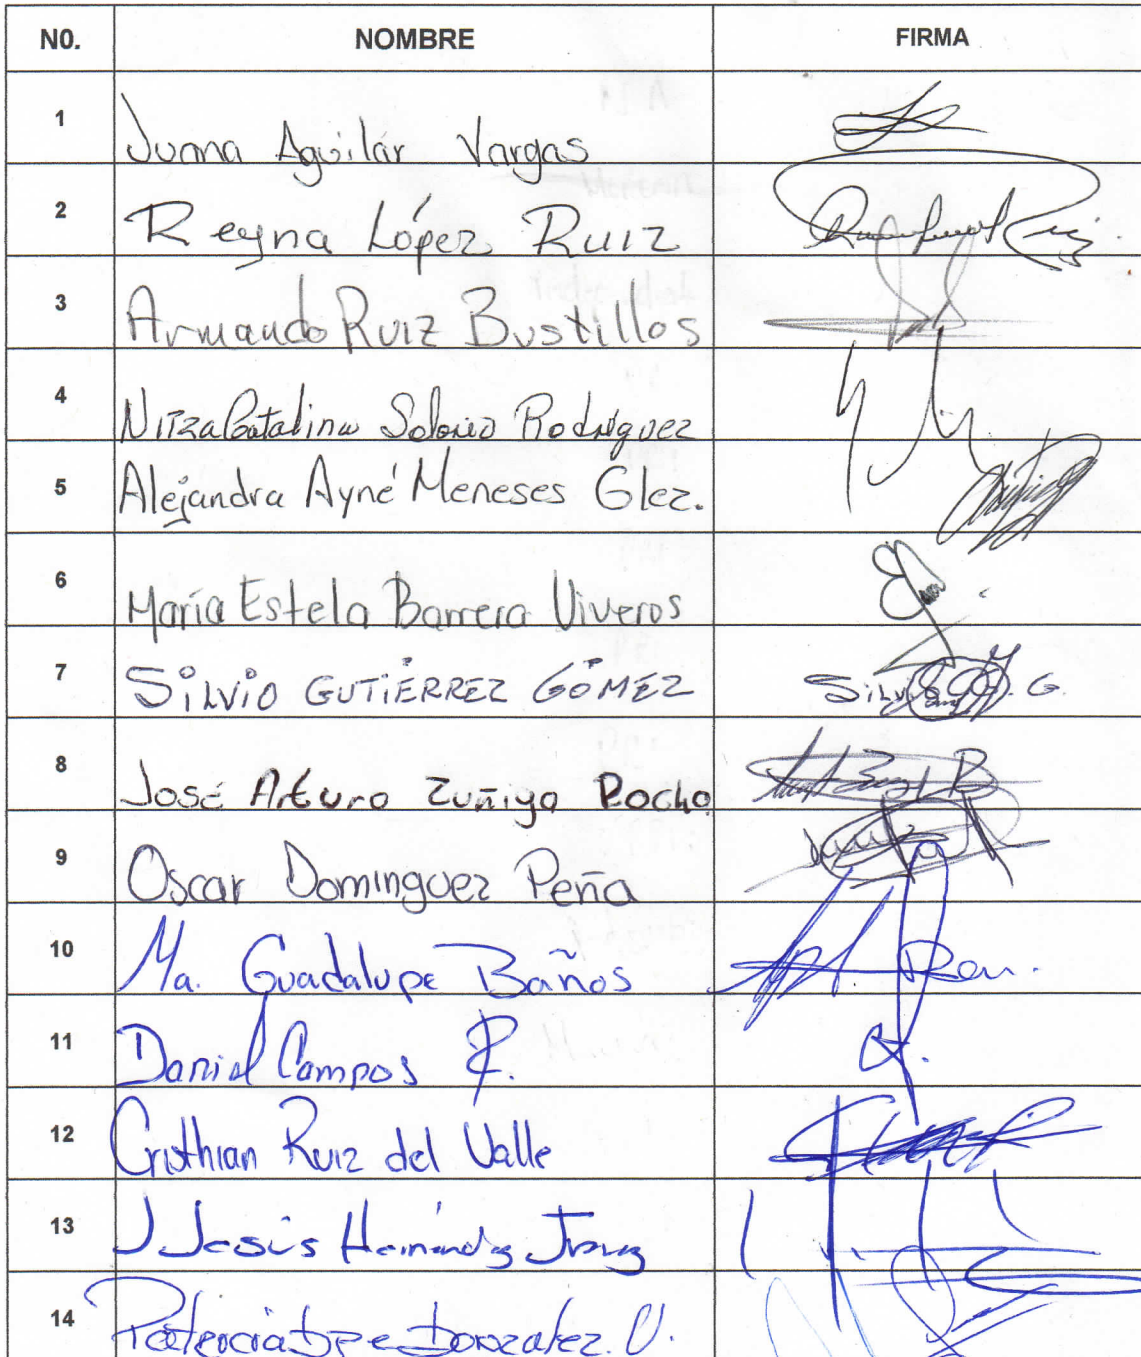 N0. NOMBRE FIRMA
1 Juana Aguilar Vargas
2 Reyna López Ruiz
3 Armando Ruiz Bustillos
4 Nitza Catalina Solorio Rodríguez
5 Alejandra Ayné Meneses Glez.
6 María Estela Barrera Viveros
7 SiLViO GUTIÉRREZ GÓMEZ Silvio G. G.
8 José Arturo Zuñiga Rocha
9 Oscar Dominguez Peña
10 Ma. Guadalupe Baños
11 Daniel Campos R.
12 Cristhian Ruiz del Valle
13 J Jesús Hernández
14